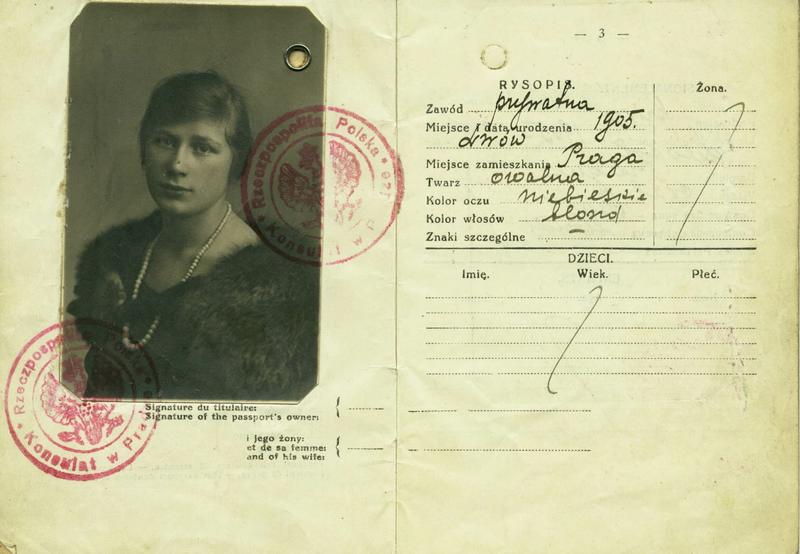 Rzeczpospolita Polska * 162
* Konsulat w P
Rzeczpospolita Polska
* Konsulat w Pra
Signature du titulaire:
Signature of the passport's owner:
i jego żony:
et de sa femme:
and of his wife:
— 3 —
RYSOPIS.
Żona.
Zawód prywatna
Miejsce i data urodzenia 1905.
Lwów
Miejsce zamieszkania Praga
Twarz owalna
Kolor oczu niebieskie
Kolor włosów blond
Znaki szczególne —
DZIECI.
Imię. Wiek. Płeć.